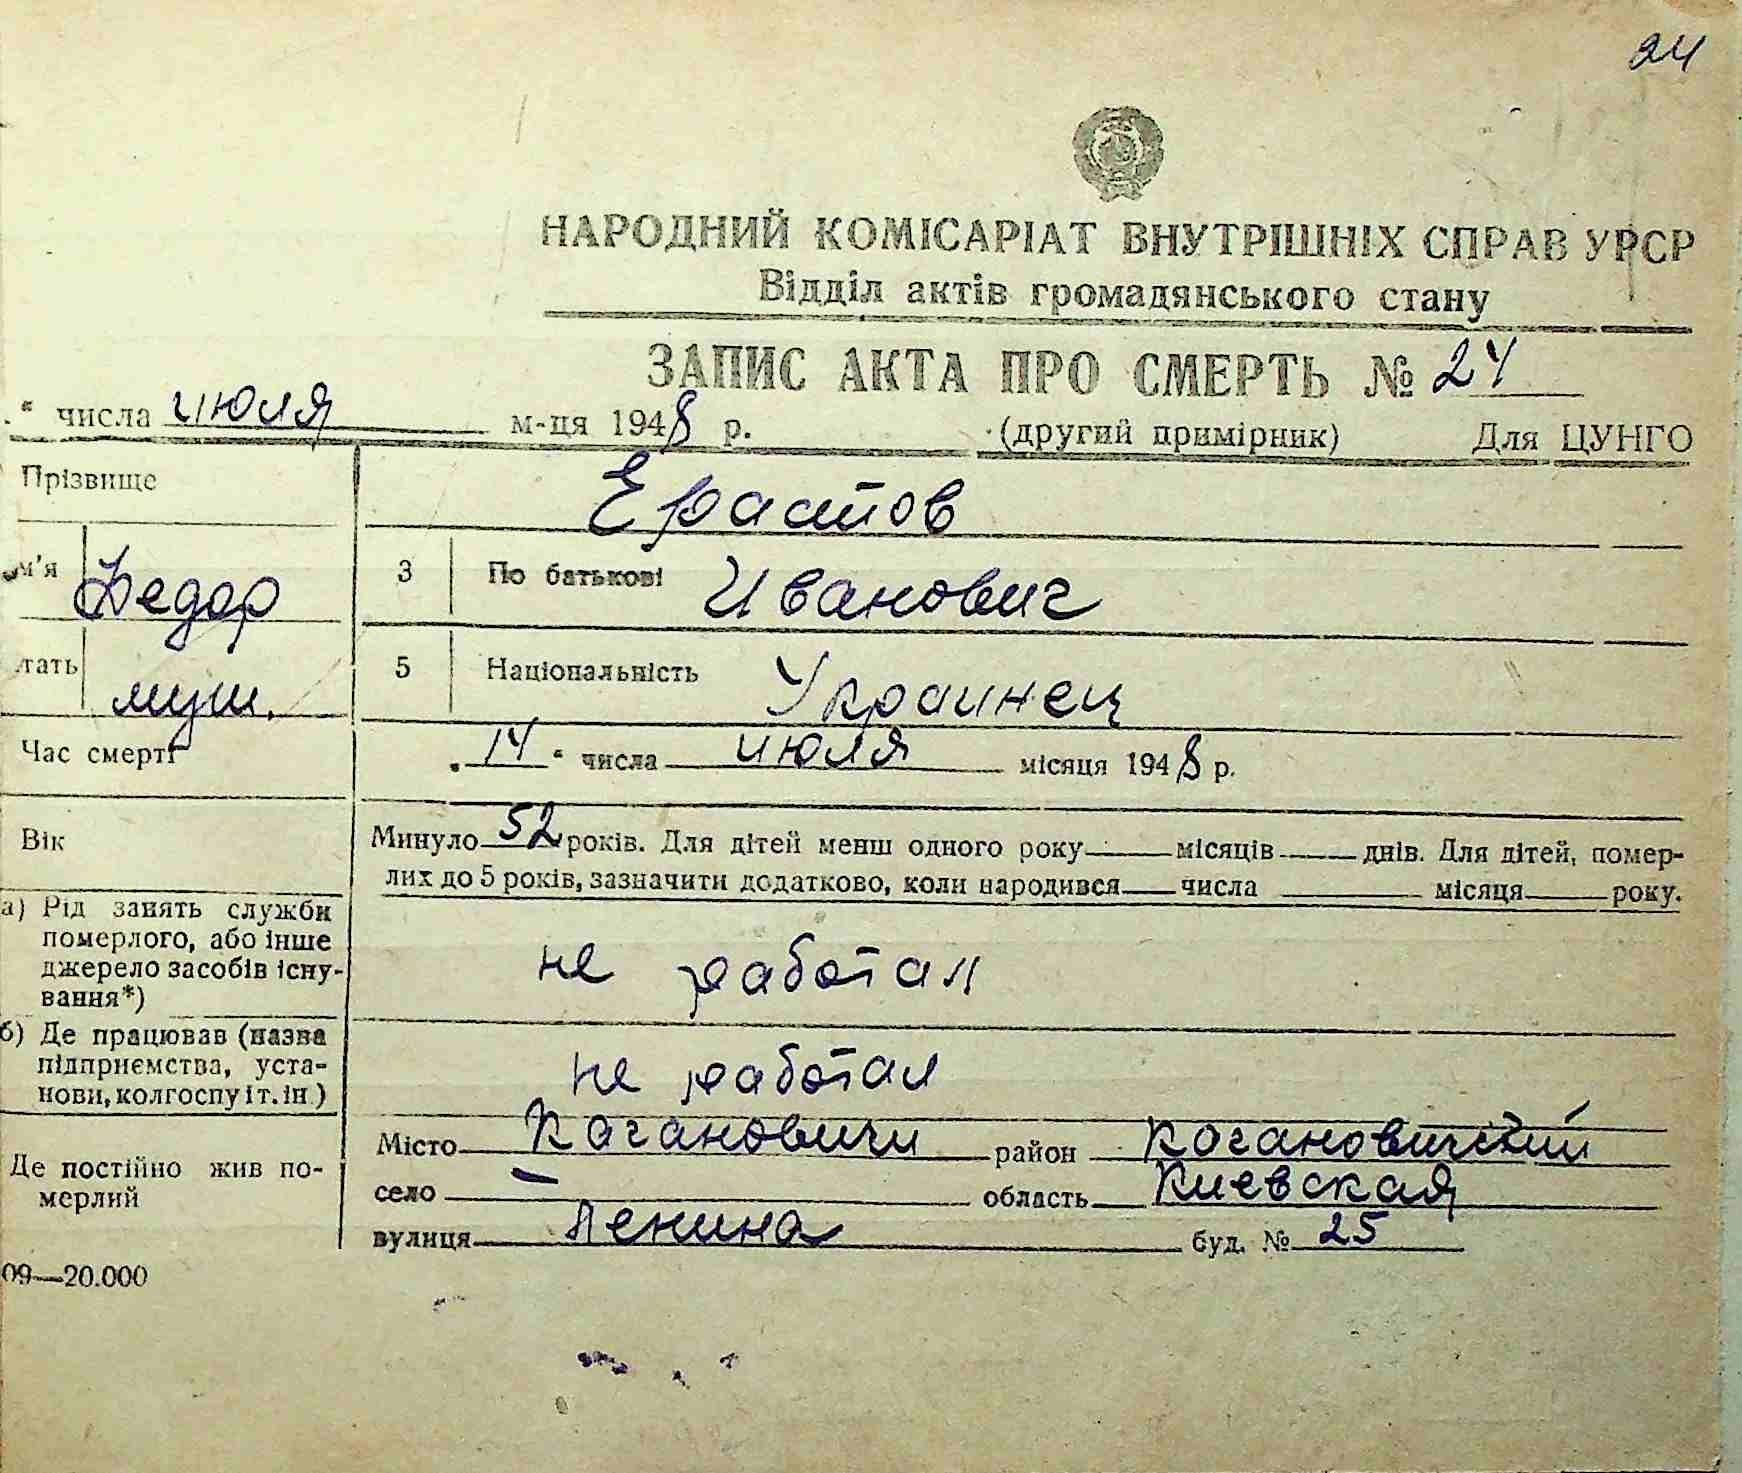 24
НАРОДНИЙ КОМІСАРІАТ ВНУТРІШНІХ СПРАВ УРСР
Відділ актів громадянського стану
ЗАПИС АКТА ПРО СМЕРТЬ № 24
“ числа июля м-ця 1948 р. (другий примірник) Для ЦУНГО
Прізвище Ерастов
м'я Федор 3 По батькові Иванович
тать муж. 5 Національність Украинец
Час смерті „14“ числа июля місяця 1948 р.
Вік Минуло 52 років. Для дітей менш одного року місяців днів. Для дітей, помер-
лих до 5 років, зазначити додатково, коли народився числа місяця року.
а) Рід занять служби
померлого, або інше
джерело засобів існу-
вання*)
не работал
б) Де працював (назва
підприємства, уста-
нови, колгоспу і т. ін.)
не работал
Де постійно жив по-
мерлий
Місто Кагановичи район Кагановичский
село — область Киевская
вулиця Ленина буд. № 25
09—20.000